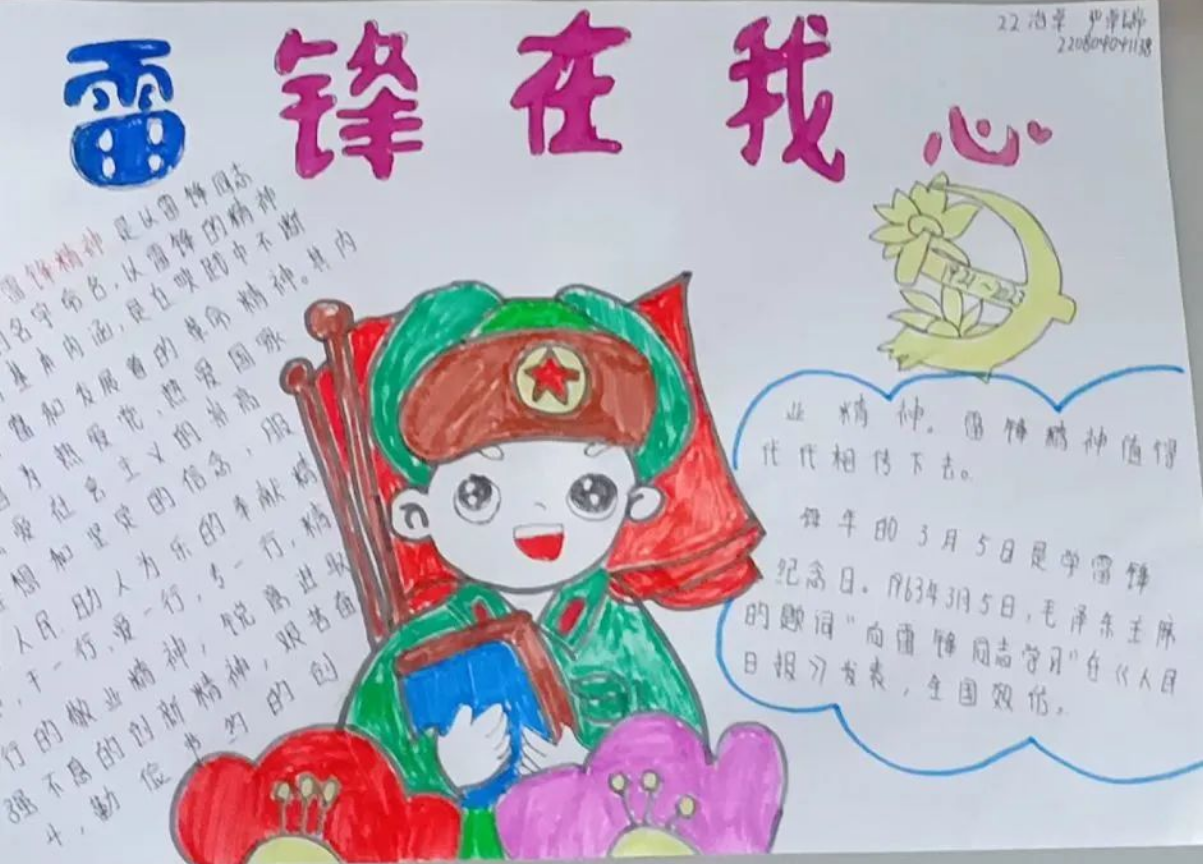 雷锋在我心
22冶草
220804041138
雷锋精神是以雷锋同志
名字命名,以雷锋的精神
基本内涵,是在实践中不断
富和发展着的革命精神。其内
为热爱党,热爱国家
爱社会主义的崇高
想和坚定的信念,服
人民,助人为乐的奉献精
,干一行,爱一行,专一行,精
行的敬业精神,锐意进取
强不息的创新精神,艰苦奋
斗,勤俭节约的创
1921~2023
业精神。雷锋精神值得
代代相传下去。
每年的3月5日是学雷锋
纪念日。1963年3月5日,毛泽东主席
的题词“向雷锋同志学习”在《人民
日报》发表,全国效仿。